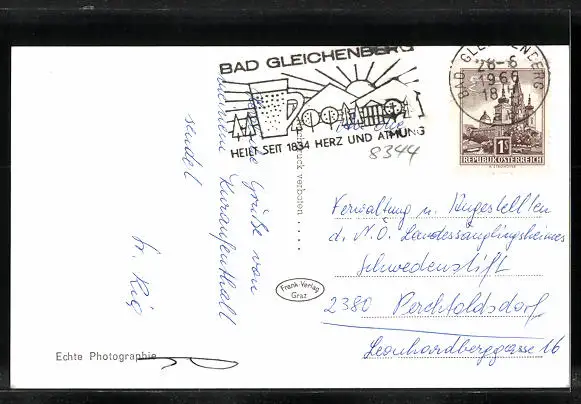 BAD GLEICHENBERG
HEILT SEIT 1834 HERZ UND ATMUNG
BAD GLEICHENBERG
28-6
1966
18
1 S
REPUBLIK ÖSTERREICH
8344
An die
Verwaltung u. Angestellten
d. N.Ö. Landessäuglingsheimes
Schwedenstift
2380 Perchtoldsdorf
Leonhardberggasse 16
Grüße von
meinem Kuraufenthalt
sendet
Nachdruck verboten . . . .
Frank-Verlag
Graz
Echte Photographie